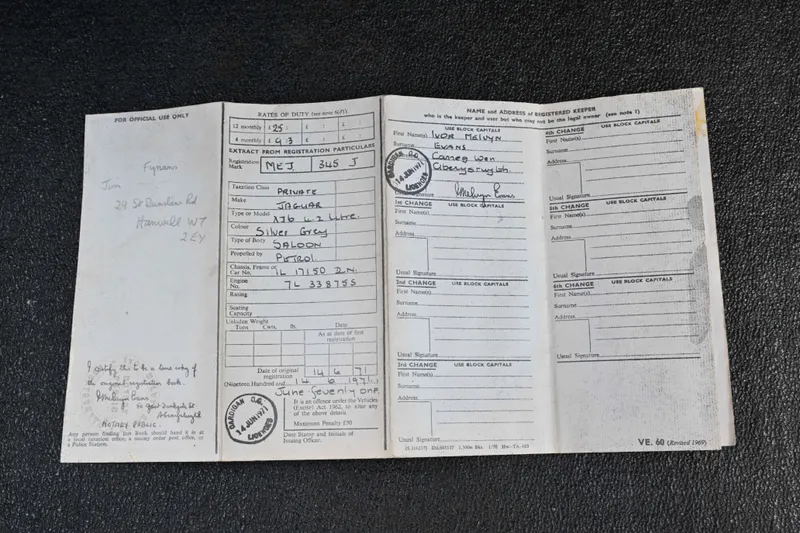 FOR OFFICIAL USE ONLY
Jim Fynann
24 St Dunstans Rd
Hanwell W7
2EY
I certify this to be a true copy of
the original registration book.
Melvyn Evans
NOTARY PUBLIC.
Any person finding this Book should hand it in at
a local taxation office, a money order post office, or
a Police Station.
RATES OF DUTY (see note 6(f))
12 monthly £25 : £ :
4 monthly £9.3 £ :
EXTRACT FROM REGISTRATION PARTICULARS
Registration Mark MEJ 345 J
Taxation Class PRIVATE
Make JAGUAR
Type or Model XJ6 4.2 Litre.
Colour Silver Grey
Type of Body SALOON
Propelled by PETROL
Chassis, Frame or Car No. 1L 17150 D.N.
Engine No. 7L 33875S
Rating
Seating Capacity
Unladen Weight Date
Tons Cwts. lb. As at date of first registration
Date of original registration 14 6 71
(Nineteen Hundred and 14 6 1971.)
June Seventy one
CARDIGAN C.C.
14 JUN 1971
LICENCES
It is an offence under the Vehicles
(Excise) Act 1962, to alter any
of the above details.
Maximum Penalty £50
Date Stamp and Initials of
Issuing Officer.
NAME and ADDRESS of REGISTERED KEEPER
who is the keeper and user but who may not be the legal owner (see note 1)
USE BLOCK CAPITALS
First Name(s) IVOR MELVYN
Surname EVANS
Carreg Wen
CARDIGAN C.C.
14 JUN 1971
LICENCES
Usual Signature Melvyn Evans
1st CHANGE USE BLOCK CAPITALS
First Name(s)
Surname
Address
Usual Signature
2nd CHANGE USE BLOCK CAPITALS
First Name(s)
Surname
Address
Usual Signature
3rd CHANGE USE BLOCK CAPITALS
First Name(s)
Surname
Address
Usual Signature
4th CHANGE USE BLOCK CAPITALS
First Name(s)
Surname
Address
Usual Signature
5th CHANGE USE BLOCK CAPITALS
First Name(s)
Surname
Address
Usual Signature
6th CHANGE USE BLOCK CAPITALS
First Name(s)
Surname
Address
Usual Signature
VE. 60 (Revised 1969)